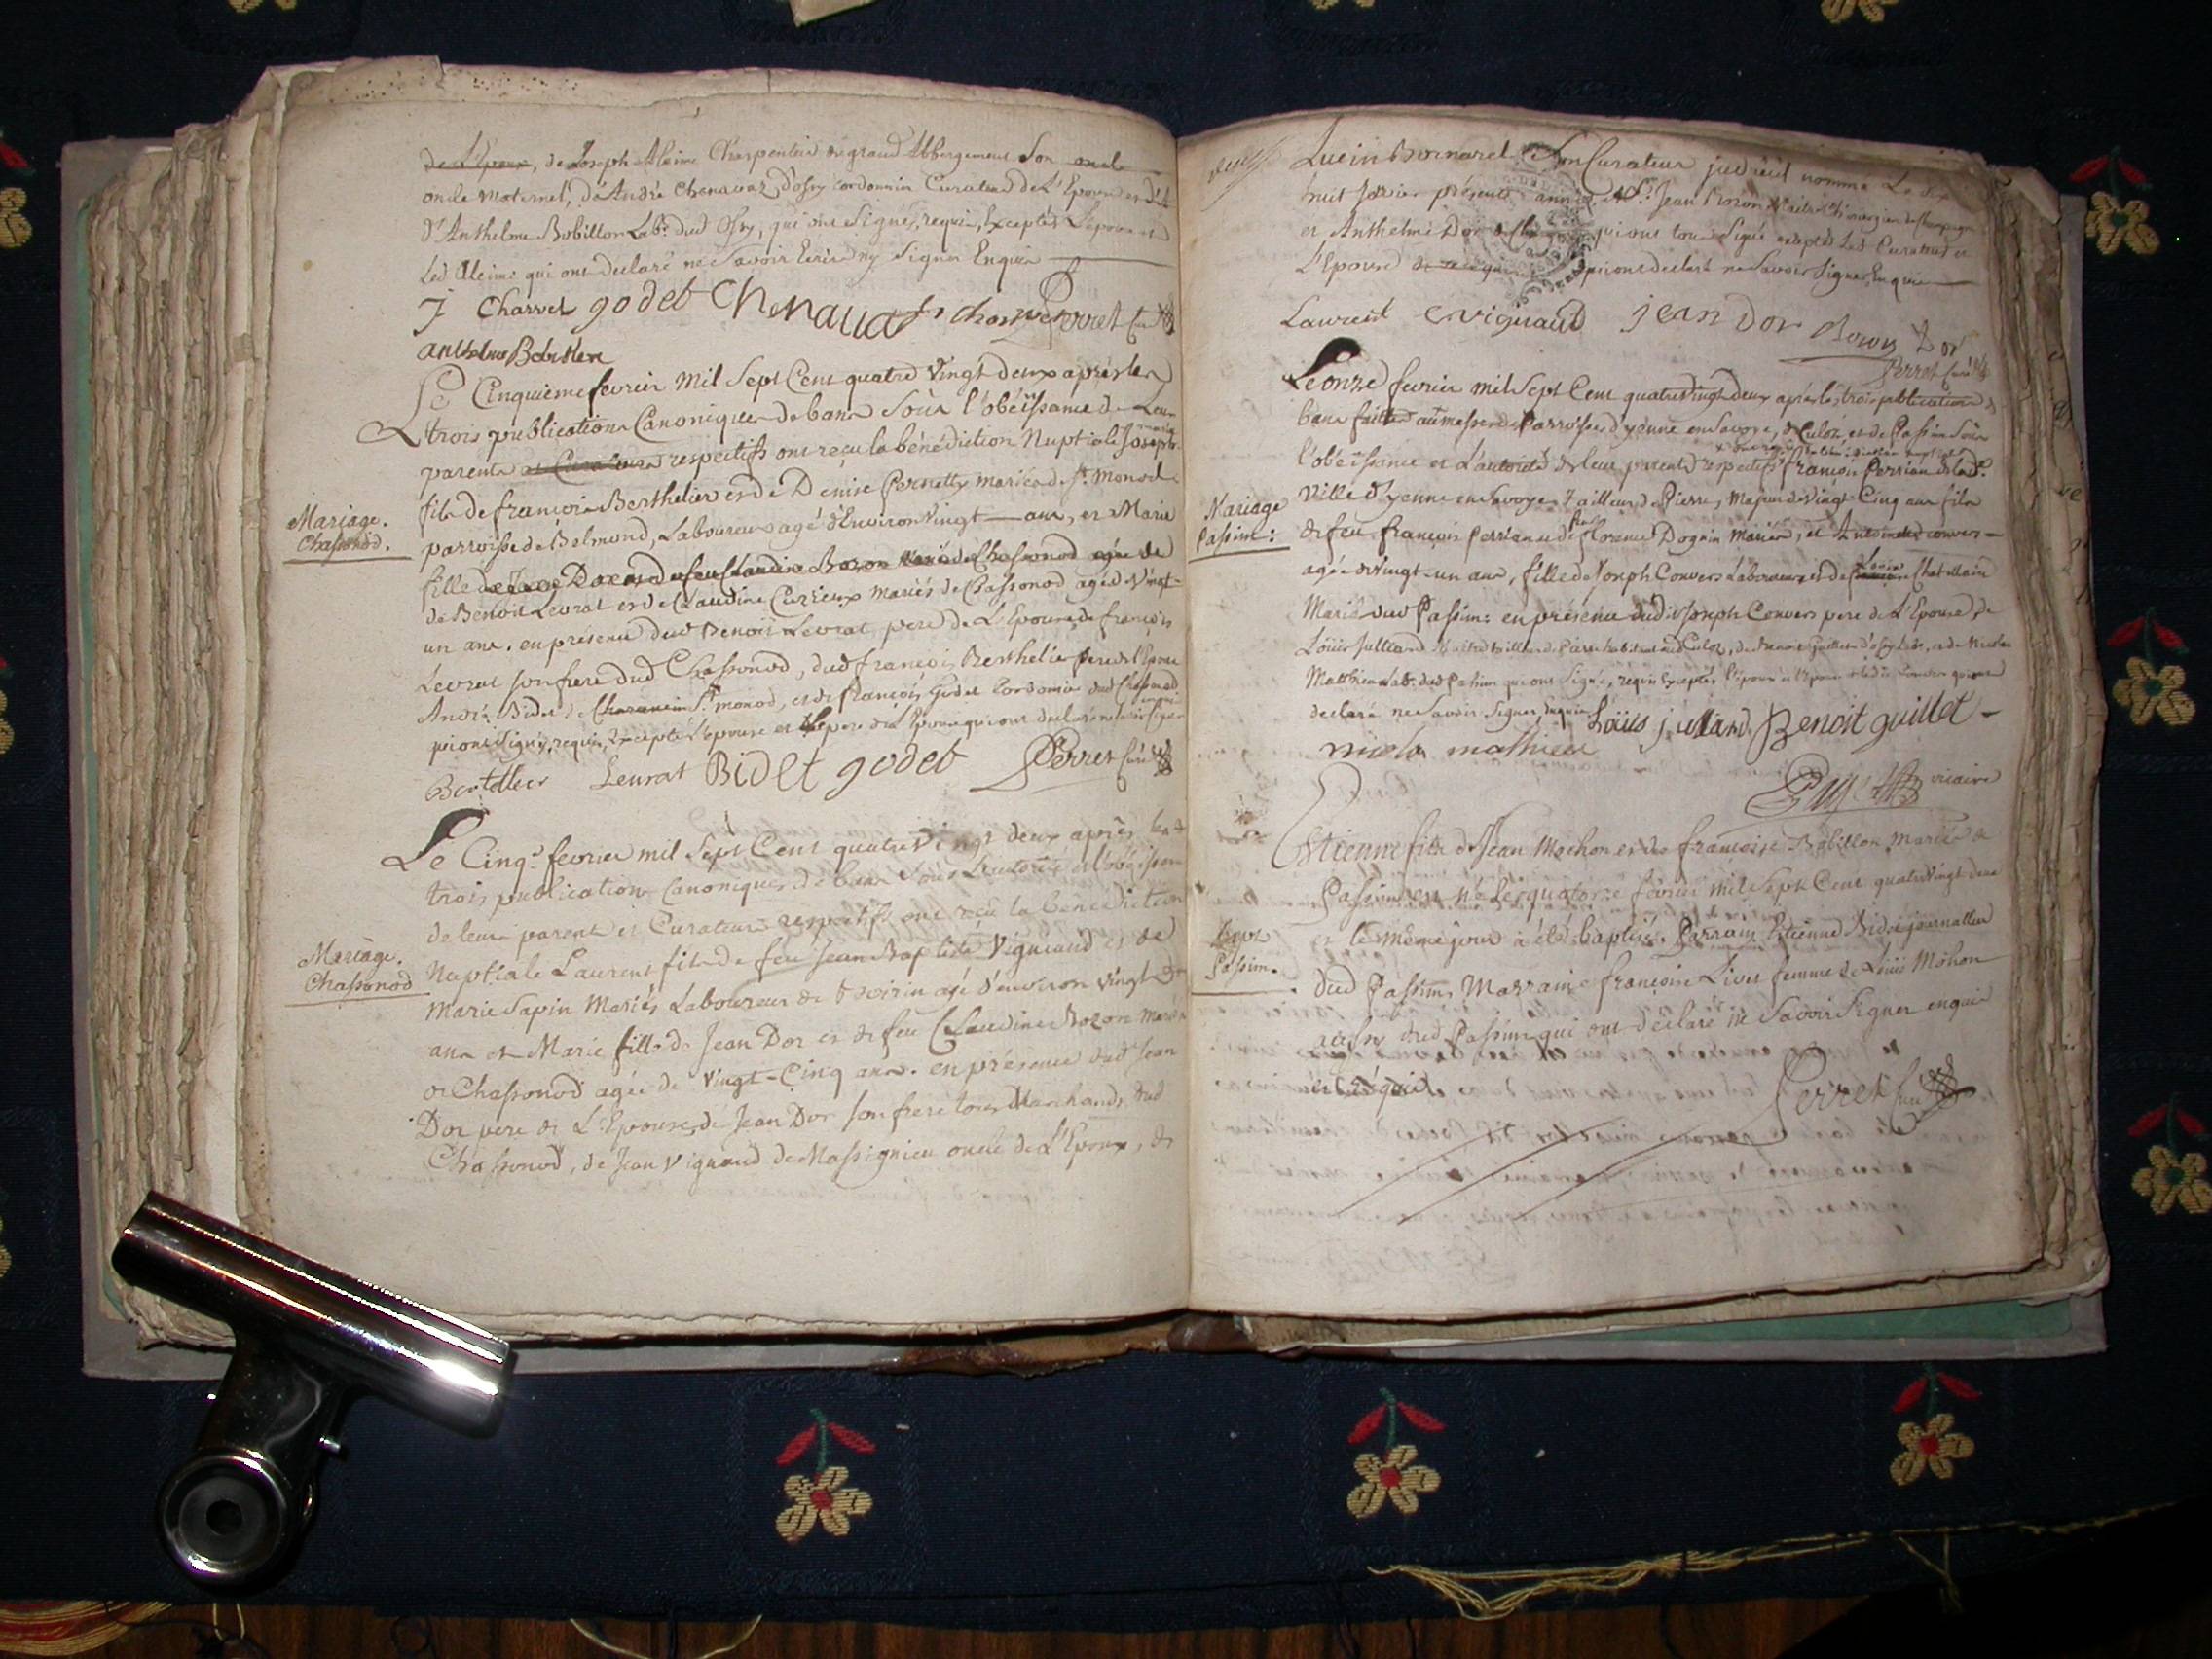 de L'Epoux, de Joseph Aleime Charpentier du grand Abbergement Son oncle
oncle Maternel, d'André Chenavaz d'ossy cordonnier Curateur de L'Epoux et de
d'Anthelme Bobillon Lab.r dud ossy, qui ont Signés, requis, Exceptés L'epouse et
Led Aleime qui ont declaré ne Savoir Ecrire ny Signer Enquis
J Charvet godet Chenavas Perret Curé
anthelme Bobillon
Le Cinquieme fevrier Mil Sept Cent quatre Vingt deux après les
trois publications Canoniques de bans Sous l'obéissance de Leurs
parents et Curateurs respectifs ont reçu la bénédiction Nuptiale Joseph marie
fils de françois Berthelier et de Denise Pernetty mariés de St. Monod
parroisse de Belmond, Laboureur agé d'Environ Vingt ans, et Marie
fille de Jean Dor et de feu Claudine Bozon Mariés de Chassonod agée de
de Benoit Levrat et de Claudine Curieux mariés de Chassonod agée de Vingt
un ans. en présence dud Benoit Levrat, pere de L'Epouse, de françois
Levrat son frere dud Chassonod, dud françois Berthelier pere de l'Epoux
André Bidet de St. monod, et de françois Godet Cordonnier dud Chassonod
qui ont Signé, requis, Excepté L'epouse et le pere de l'Epoux qui ont declaré ne Savoir Signer
Bertellier Leurat Bidet godet Perret Curé
Mariage.
Chassonod.
Le Cinq.e fevrier mil Sept Cent quatre Vingt deux après les
trois publications Canoniques de bans Sous L'autorité et l'obéissance
de leurs parents et Curateurs respectifs ont reçu la bénédiction
Nuptiale Laurent fils de feu Jean Baptiste Vignaud et de
Marie Sapin Mariés Laboureur de agé d'environ Vingt
ans et Marie fille de Jean Dor et de feu Claudine Bozon mariés
de Chassonod agée de Vingt-Cinq ans. en présence dud Jean
Dor pere de L'Epouse, de Jean Dor son frere tous Marchands dud
Chassonod, de Jean Vignaud de Massignieu oncle de L'Epoux, de
Mariage.
Chassonod
Lucin Bornarel Son Curateur judiciel nommé Le dix
huit Janvier présente année, et Sr. Jean Bozon Maitre Chirurgien de Champagne
et Anthelme Dor qui ont tous Signé exceptés Led Curateur et
L'Epouse qui ont declaré ne Savoir Signer, Enquis
Laurent Cvignaud jean Dor Bozon Dor
Perret Curé
Le onze fevrier mil Sept Cent quatre Vingt deux après les trois publications de
bans faittes aux messes de Parroisses d'yenne en Savoye, de Culoz, et de Passin Sous
l'obéissance et L'autorité de leurs parents respectifs françois Perrian de lad.
Ville d'yenne en Savoye Tailleur de Pierre, Majeur de Vingt Cinq ans fils
de feu françois Perrian et de florence Dognin Mariés, et Antoinette convers
agée de Vingt-un ans, fille de Joseph Convers Laboureur et de Chatellain
Mariés dud Passin: en présence dudit Joseph Convers pere de L'Epouse, de
Loüis Julliard Maitre tailleur de Pierre habitant aud Culoz, de Benoit Guillet d'ossy Lab., et de Nicolas
Matthieu Lab. dud Passin qui ont Signé, requis Exceptés l'époux et l'épouse et led Convers qui ont
declaré ne Savoir Signer, Enquis Loüis julliard Benoit guillet
nicola mathieu
vicaire
Mariage
Passin:
Etienne fils de Jean Mochon et de françoise Bobillon Mariés de
Passin est né Le quatorze fevrier mil Sept Cent quatre Vingt deux
et le même jour a été baptisé. Parrain Etienne Bidet journallier
dud Passin, Marraine françoise Livet femme de Loüis Mohon
aussy dud Passin qui ont déclaré ne Savoir Signer enquis
et réquis.
Perret Curé
Bapt
Passin.